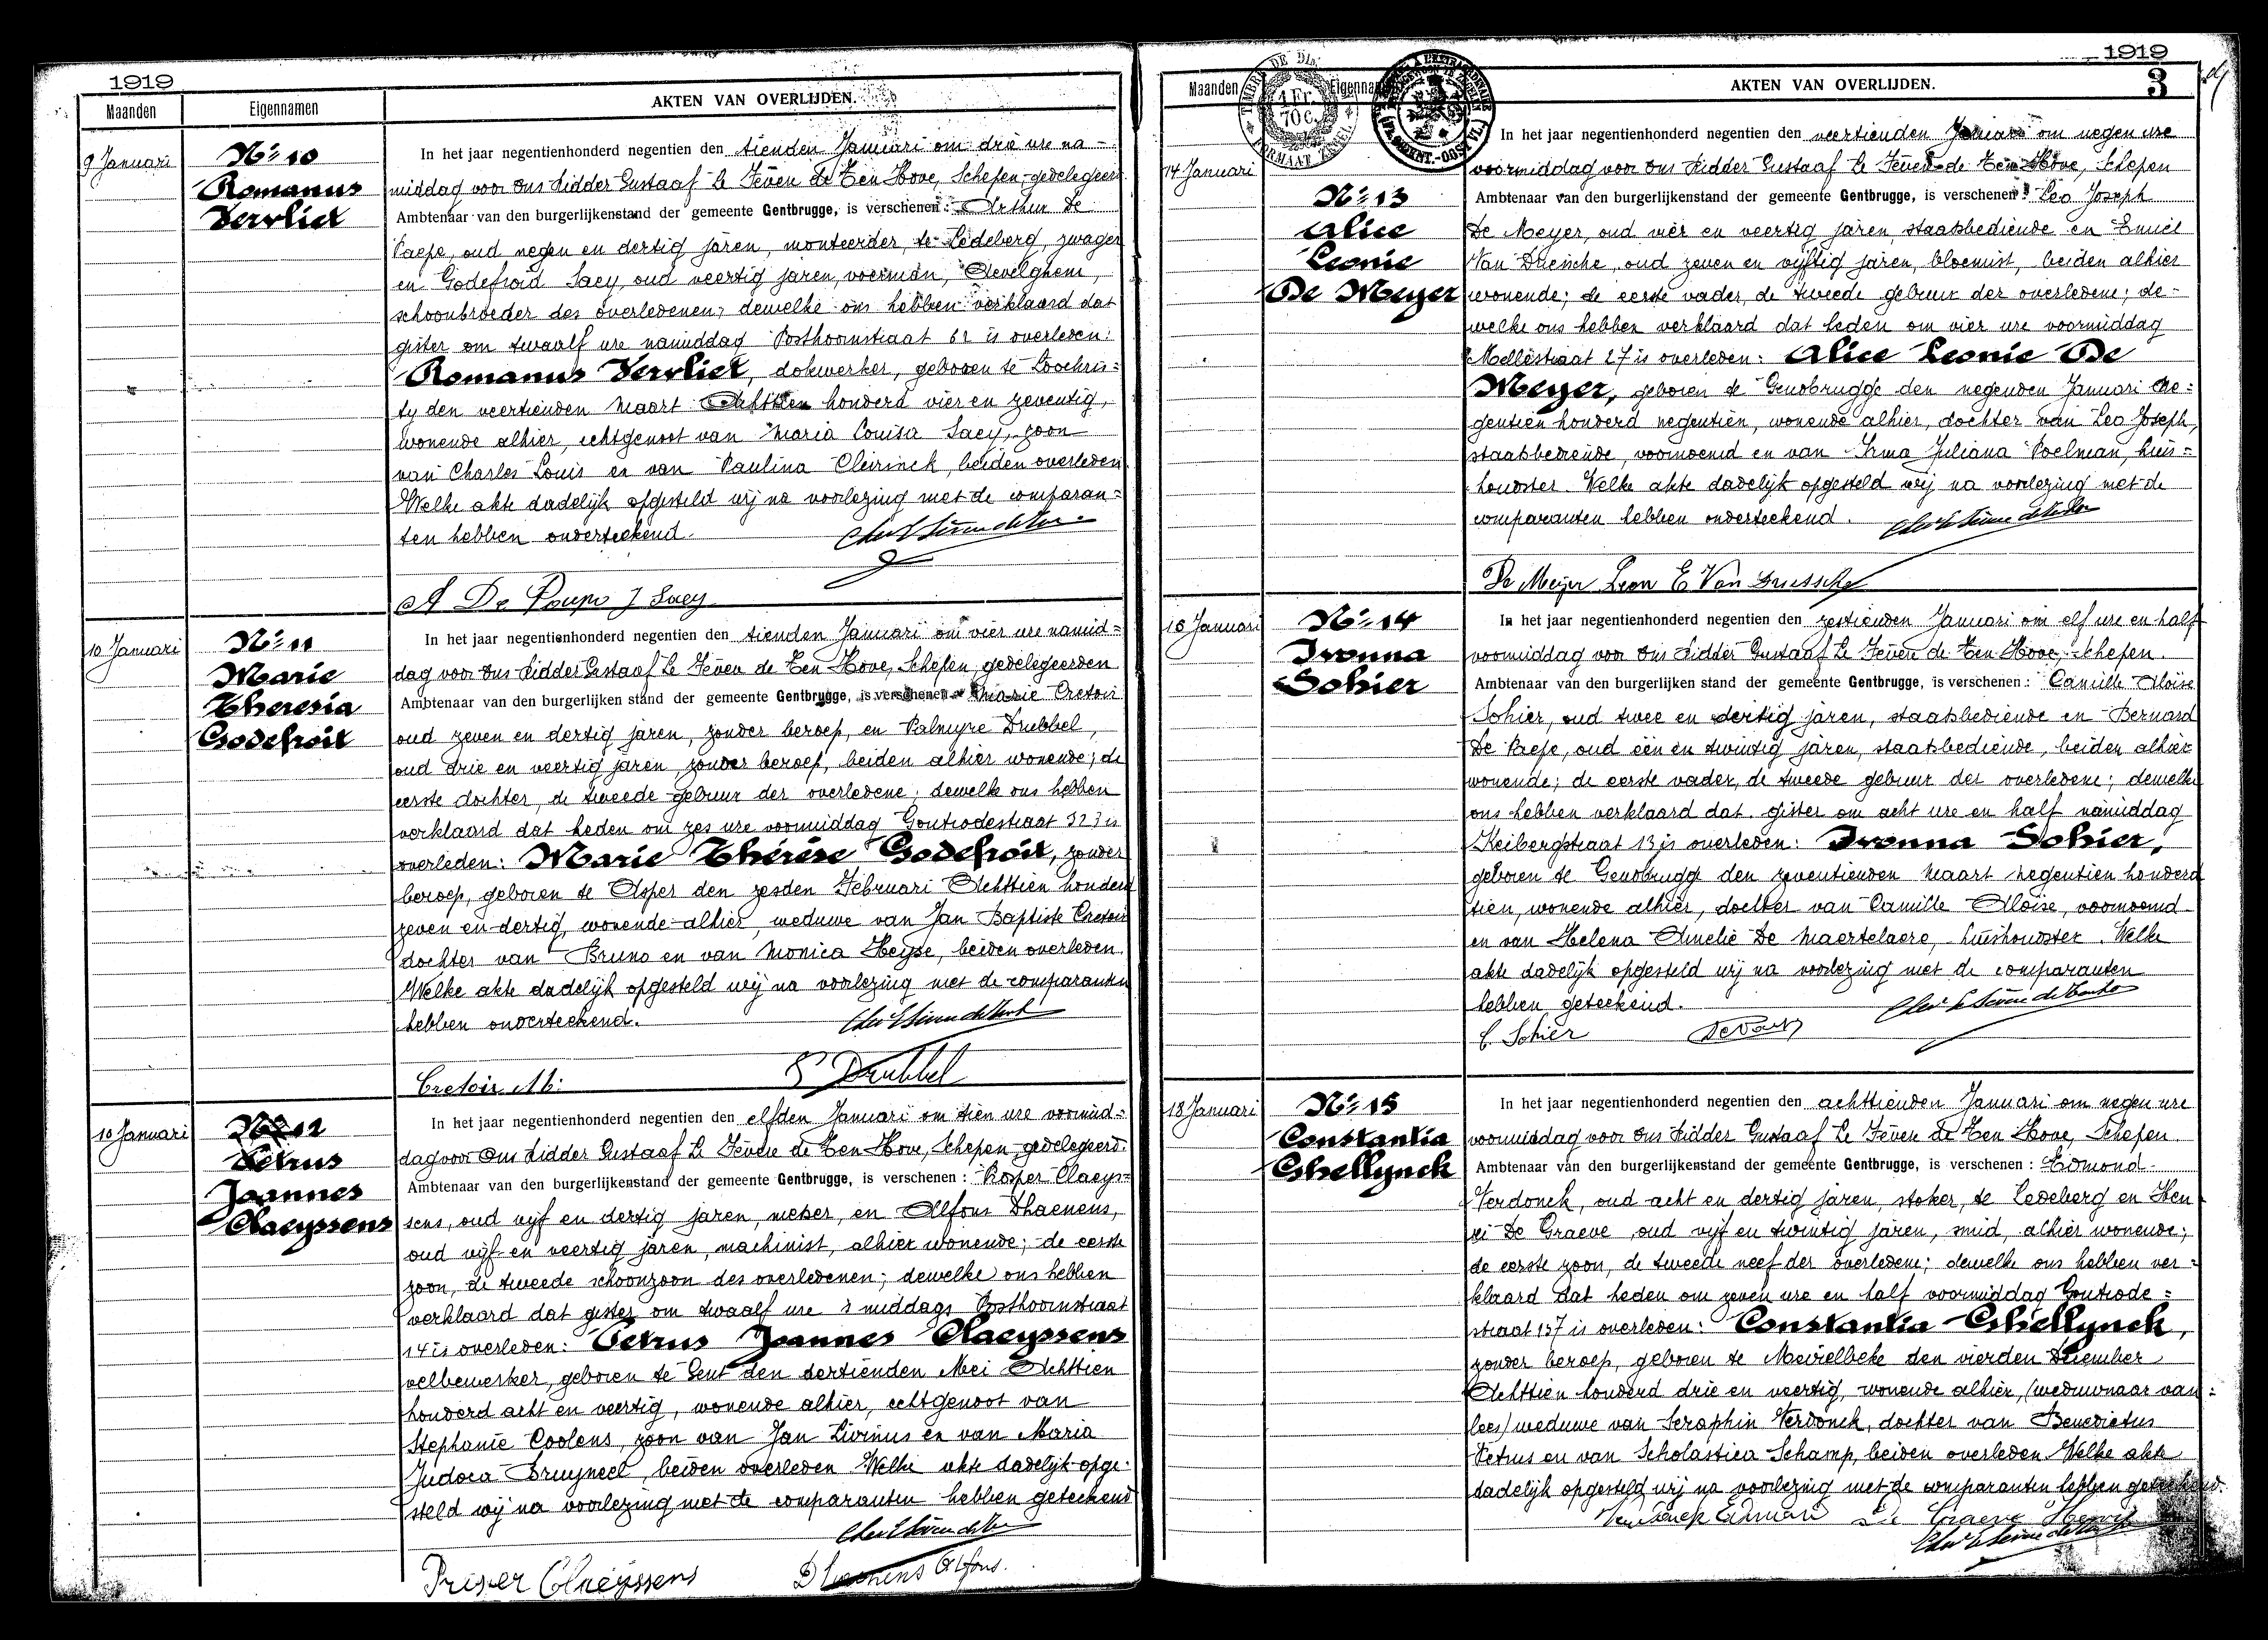 1919
Maanden
Eigennamen
AKTEN VAN OVERLIJDEN.
9 Januari
No 10
Romanus
Vervliet
In het jaar negentienhonderd negentien den tienden Januari om drie ure na-
middag voor Ons Ridder Gustaaf Le Fèvere de Ten Hove, Schepen, gedelegeerd
Ambtenaar van den burgerlijkenstand der gemeente Gentbrugge, is verschenen: Arthur De
Paepe, oud negen en dertig jaren, monteerder, te Ledeberg, zwager
en Godefroid Saey, oud veertig jaren, voerman, Aevelghem,
schoonbroeder des overledenen; dewelke ons hebben verklaard dat
gister om twaalf ure namiddag Posthoornstraat 62 is overleden:
Romanus Vervliet, dokwerker, geboren te Loochris=
ty den veertienden Maart Achttien honderd vier en zeventig,
wonende alhier, echtgenoot van Maria Louisa Saey, zoon
van Charles Louis en van Paulina Cleirinck, beiden overleden.
Welke akte dadelijk opgesteld wij na voorlezing met de comparan=
ten hebben onderteekend.
A De Paepe J Saey
10 Januari
No 11
Marie
Theresia
Godefroit
In het jaar negentienhonderd negentien den tienden Januari om vier ure namid=
dag voor Ons Ridder Gustaaf Le Fèvere de Ten Hove, Schepen, gedelegeerden
Ambtenaar van den burgerlijken stand der gemeente Gentbrugge, is verschenen: Marie Cretoir
oud zeven en dertig jaren, zonder beroep, en Palmyre Drubbel,
oud drie en veertig jaren, zonder beroep, beiden alhier wonende; de
eerste dochter, de tweede gebuur der overledene; dewelke ons hebben
verklaard dat heden om zes ure voormiddag Gontrodestraat 323 is
overleden: Marie Thérèse Godefroit, zonder
beroep, geboren te Asper den zesden Februari Achttien honderd
zeven en dertig, wonende alhier, weduwe van Jan Baptiste Cretoir
dochter van Bruno en van Monica Heyse, beiden overleden.
Welke akte dadelijk opgesteld wij na voorlezing met de comparanten
hebben onderteekend.
Cretoir M: P Drubbel
10 Januari
No 12
Petrus
Joannes
Claeyssens
In het jaar negentienhonderd negentien den elfden Januari om tien ure voormid=
dag voor Ons Ridder Gustaaf Le Fèvere de Ten Hove, Schepen, gedelegeerd.
Ambtenaar van den burgerlijkenstand der gemeente Gentbrugge, is verschenen: Prosper Claeys=
sens, oud vijf en dertig jaren, metser, en Alfons Dhaenens,
oud vijf en veertig jaren, machinist, alhier wonende; de eerste
zoon, de tweede schoonzoon des overledenen; dewelke ons hebben
verklaard dat gister om twaalf ure 's middags Posthoornstraat
14 is overleden: Petrus Joannes Claeyssens
velbewerker, geboren te Gent den dertienden Mei Achttien
honderd acht en veertig, wonende alhier, echtgenoot van
Stephanie Coolens, zoon van Jan Livinus en van Maria
Judoca Bruyneel, beiden overleden. Welke akte dadelijk opge-
steld wij na voorlezing met de comparanten hebben geteekend
Prosper Claeyssens Dhaenens Alfons.
1919
3
Maanden
Eigennamen
AKTEN VAN OVERLIJDEN.
TIMBRE DE DIM.
1 Fr.
70 c.
FORMAAT ZEGEL
14 Januari
No 13
Alice
Leonie
De Meyer
In het jaar negentienhonderd negentien den veertienden Januari om negen ure
voormiddag voor Ons Ridder Gustaaf Le Fèvere de Ten Hove, Schepen
Ambtenaar van den burgerlijkenstand der gemeente Gentbrugge, is verschenen: Leo Joseph
De Meyer, oud vier en veertig jaren, staatsbediende en Emiel
Van Driessche, oud zeven en vijftig jaren, bloemist, beiden alhier
wonende; de eerste vader, de tweede gebuur der overledene; de-
welke ons hebben verklaard dat heden om vier ure voormiddag
Mellestraat 27 is overleden: Alice Leonie De
Meyer, geboren te Genthrugge den negenden Januari Ne=
gentien honderd negentien, wonende alhier, dochter van Leo Joseph,
staatsbediende, voornoemd en van Irma Juliana Poelman, huis=
houdster. Welke akte dadelijk opgesteld wij na voorlezing met de
comparanten hebben onderteekend.
De Meijer Leon E Van Driessche
16 Januari
No 14
Ivonna
Sohier
In het jaar negentienhonderd negentien den zestienden Januari om elf ure en half
voormiddag voor Ons Ridder Gustaaf Le Fèvere de Ten Hove, Schepen.
Ambtenaar van den burgerlijken stand der gemeente Gentbrugge, is verschenen: Camille Aloïse
Sohier, oud twee en dertig jaren, staatsbediende en Bernard
De Paepe, oud één en twintig jaren, staatsbediende, beiden alhier
wonende; de eerste vader, de tweede gebuur der overledene; dewelke
ons hebben verklaard dat gister om acht ure en half namiddag
Keibergstraat 13 is overleden: Ivonna Sohier,
geboren te Gentbrugge den zeventienden Maart negentien honderd
tien, wonende alhier, dochter van Camille Aloïse, voornoemd
en van Helena Amelie De Maertelaere, huishoudster. Welke
akte dadelijk opgesteld wij na voorlezing met de comparanten
hebben geteekend.
C. Sohier
18 Januari
No 15
Constantia
Ghellynck
In het jaar negentienhonderd negentien den achttienden Januari om negen ure
voormiddag voor Ons Ridder Gustaaf Le Fèvere de Ten Hove, Schepen
Ambtenaar van den burgerlijkenstand der gemeente Gentbrugge, is verschenen: Edmond
Verdonck, oud acht en dertig jaren, stoker, te Ledeberg en Hen
ri De Graeve, oud vijf en twintig jaren, smid, alhier wonende;
de eerste zoon, de tweede neef der overledene; dewelke ons hebben ver=
klaard dat heden om zeven ure en half voormiddag Gontrode=
straat 137 is overleden: Constantia Ghellynck,
zonder beroep, geboren te Meirelbeke den vierden December
Achttien honderd drie en veertig, wonende alhier, (weduwnaar van=
lees) weduwe van Seraphin Verdonck, dochter van Benedictus
Petrus en van Scholastica Schamp, beiden overleden. Welke akte
dadelijk opgesteld wij na voorlezing met de comparanten hebben geteekend.
Verdonck Edmond De Graeve Henri